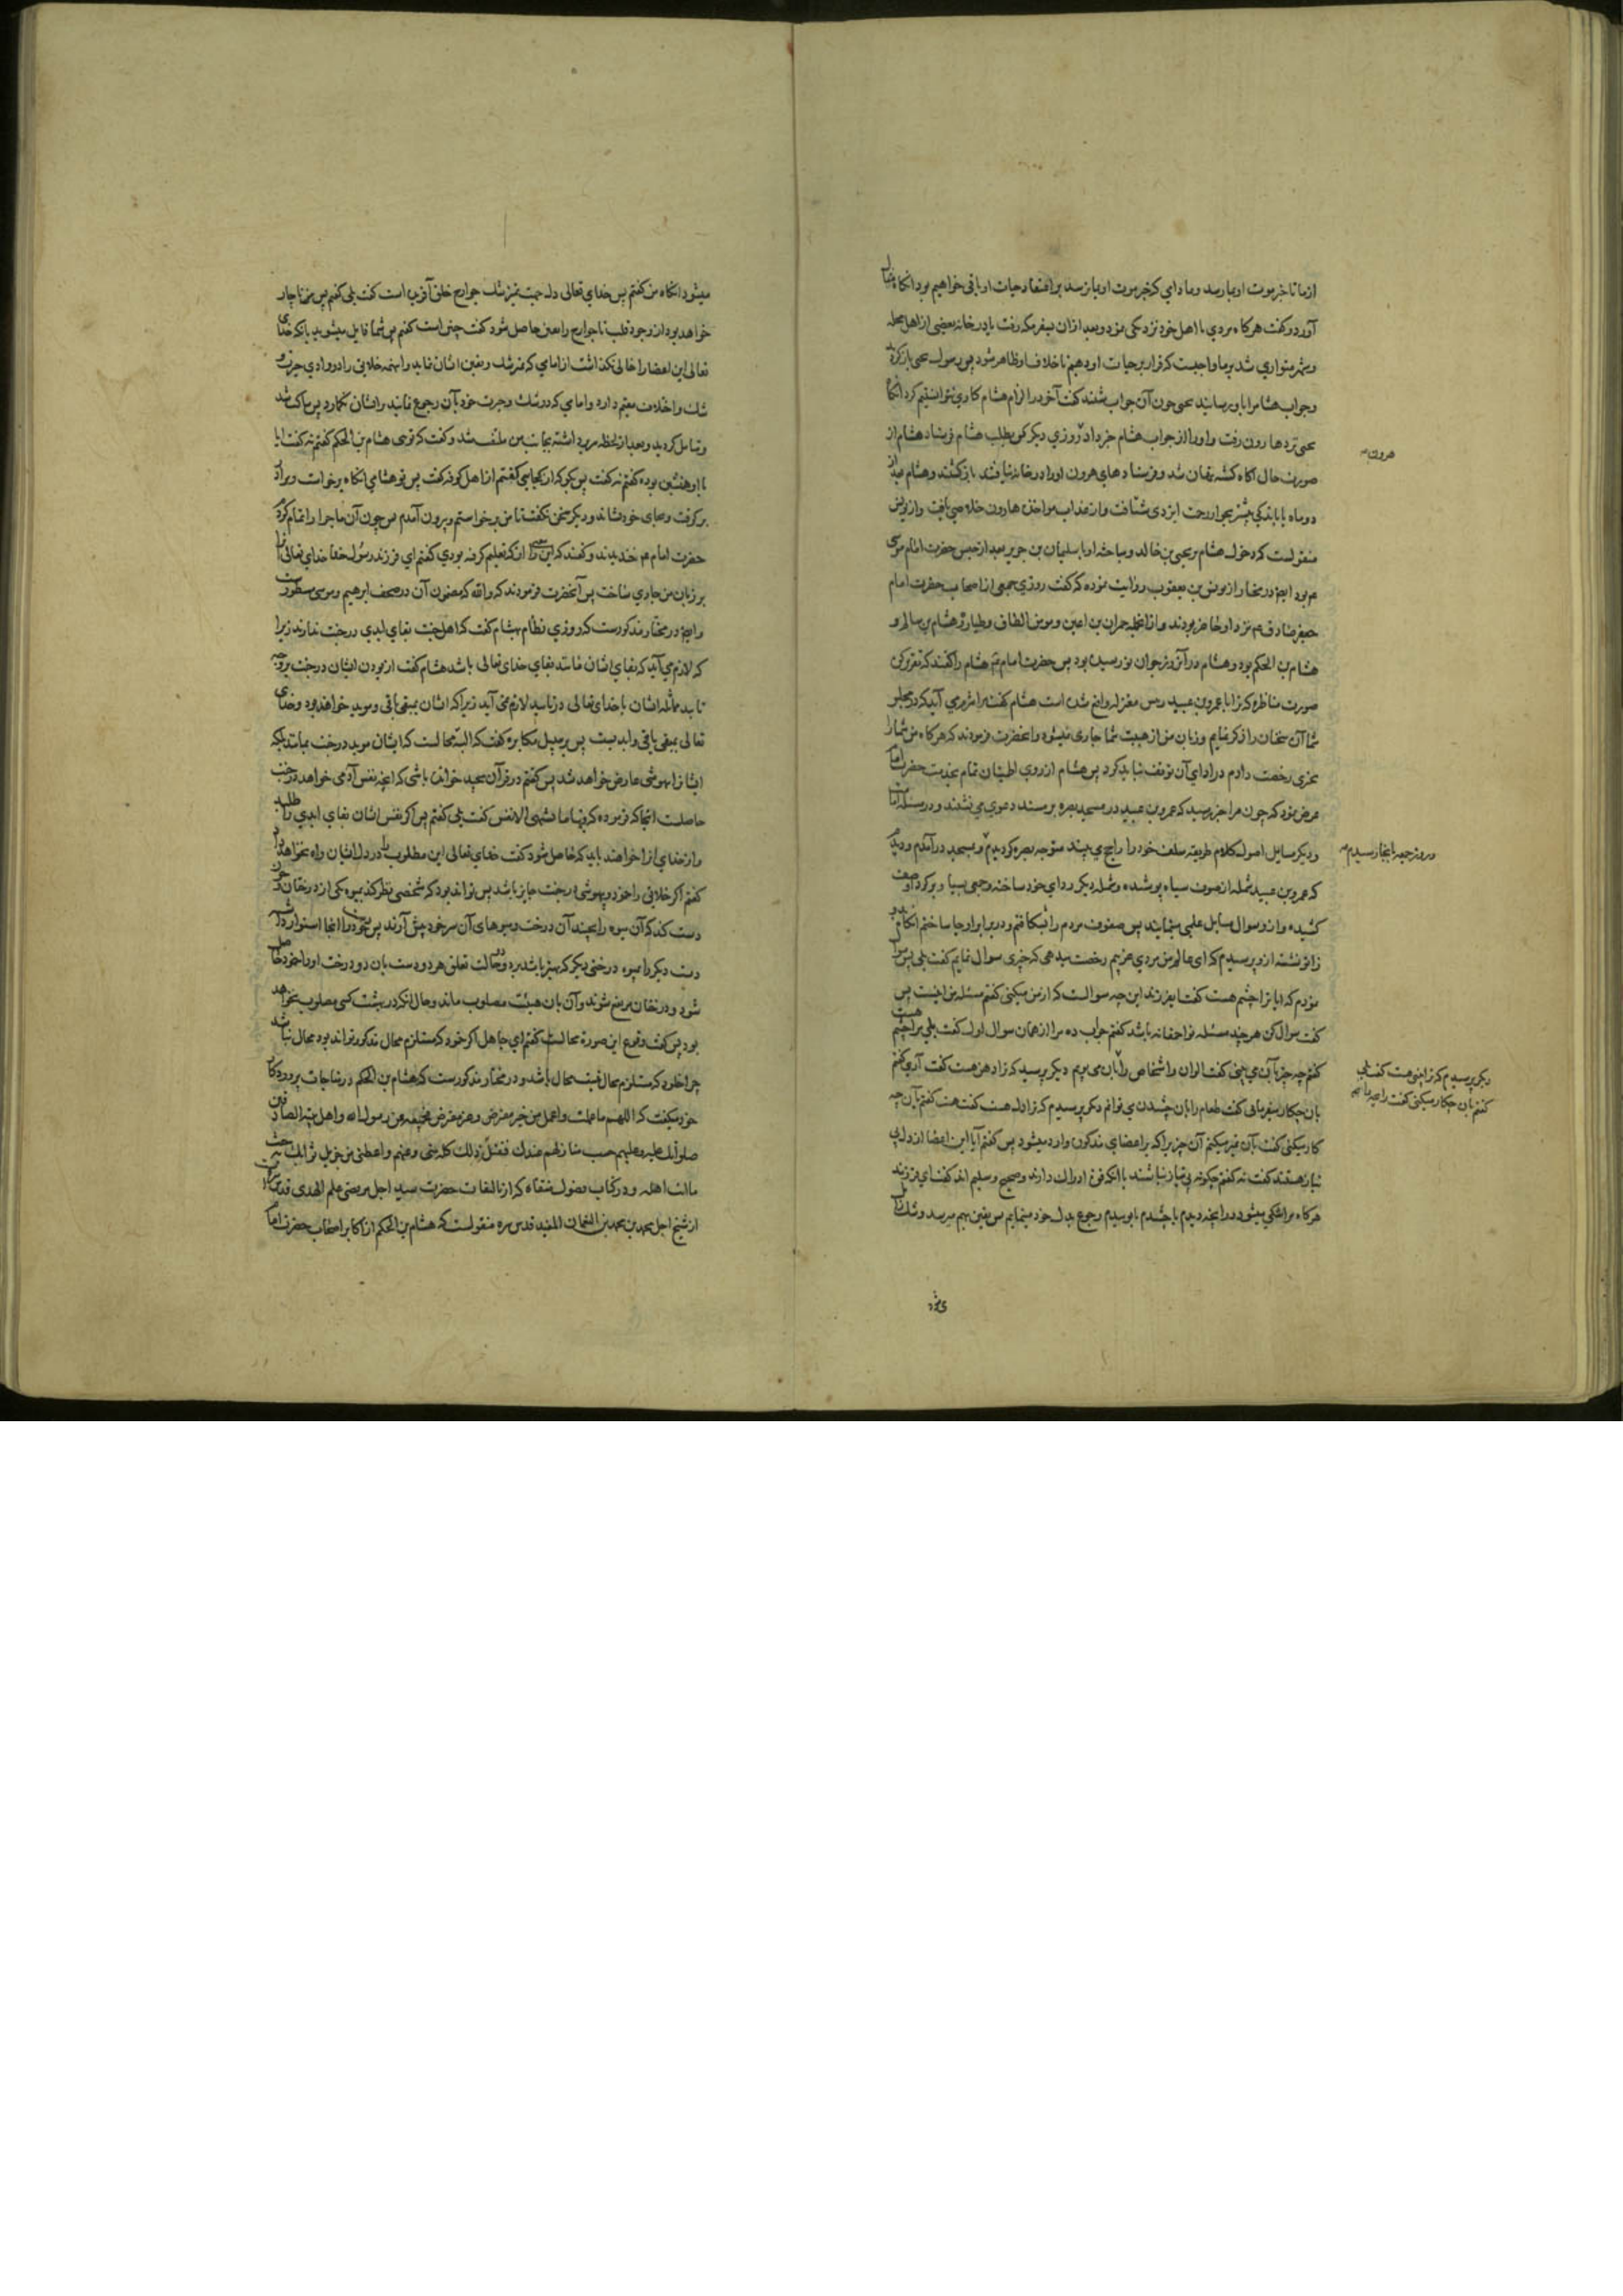 ازما تا خبر موت او بما رسد و مادامي كه خبر موت او بما نرسد بر اعتقاد حيات او باقى خواهيم بود آنكاه مثال
آورد و كفت هر كاه مردي با اهل خود نزديكى نمود و بعد از ان بسفر مكه رفت يا در خانه بعضى از اهل محله
و شهر متواري شد بر ما واجبست كه قرار بر حيات او دهيم تا خلاف او ظاهر شود پس رسول يحيى باز كرديد
و جواب هشام را باو رسانيد يحيى چون آن جواب شنيد كفت آخر در الزام هشام كاري نتوانستيم كرد آنكاه
يحيى نزد هارون رفت و او را از جواب هشام خبر داد روزي ديكر كس بطلب هشام فرستاد هشام از
هرون
صورت حال آكاه كشته پنهان شد و فرستادهاي هرون او را در خانه نيافتند باز كشتند و هشام بعد از
دو ماه يا باندكى بيشتر بجوار رحمت ايزدى شتافت و از عذاب مواخذه هارون خلاصي يافت و از يونس
منقولست كه دخول هشام بر يحيى بن خالد و مباحثه او با سليمان بن جرير بعد از حبس حضرت امام موسى
عم بود ايضا در مختار از يونس بن يعقوب روايت نموده كه كفت روزي جمعى از اصحاب حضرت امام
جعفر صادق عم نزد او حاضر بودند و از انجمله حمران بن اعين و مومن الطاق و طيار و هشام بن سالم و
هشام بن الحكم بود و هشام در آنروز جوان نورسيده بود پس حضرت امام عم هشام را كفتند كه تقرير كن
صورت مناظره كه ترا با عمرو بن عبيد رييس معتزله واقع شده است هشام كفت مرا شرم مي آيد كه در مجلس
شما آن سخنان را ذكر نمايم و زبان من از هيبت شما جارى نميشود و انحضرت فرمودند كه هر كاه من شما را
بچيزى رخصت دادم در اداي آن توقف نبايد كرد پس هشام از روي اطمينان تمام بخدمت حضرت امام
عرض نمود كه چون مرا خبر رسيد كه عمرو بن عبيد در مسجد بصره بر مسند دعوي مي نشيند و در مسئله امامت
و ديكر مسايل اصول كلام طريقه سلف خود را رايج مي بيند متوجه بصره كرديدم و بمسجد در آمدم و ديدم
و روز جمعه بانجا رسيدم
كه عمرو بن عبيد شمله از صوف سياه پوشيده و شمله ديكر رداي خود ساخته و جمعى بسيار بر كرد او صف
كشيده و از و سوال مسايل علمى مينمايند پس صفوف مردم را شكافتم و در برابر او جا ساختم آنكاه بدو
زانو نشسته از و پرسيدم كه اى عالم من مردي غريبم رخصت ميدهى كه چيزى سوال نمايم كفت بلى پس سوال
نمودم كه ايا ترا چشم هست كفت اي فرزند اين چه سوالست كه از من ميكنى كفتم مسئله من اينست پس
كفت سوال كن هر چند مسئله تو احمقانه باشد كفتم جواب ده مرا از همان سوال اول كفت بلى مرا چشم هست
كفتم چه چيز بآن مي بينى كفت الوان و اشخاص را بآن مى بينم ديكر پرسيد كه ترا دهن هست كفت آري كفتم
ديكر پرسيدم كه ترا بيني هست كفت بلى
كفتم بان چكار ميكنى كفت رايحه
بان چكار ميفرمايى كفت طعام را بان چشيدن مي توانم ديكر پرسيدم كه ترا دل هست كفت هست كفتم بآن چه
كار ميكنى كفت بآن تميز ميكنم آن چيز را كه بر اعضاي مذكوره وارد ميشود پس كفتم آيا اين اعضا از دل بي
نياز هستند كفت نه كفتم چكونه بى نياز نباشند با انكه قوة ادراك دارند و صحيح و سليم اند كفت اي فرزند
هر كاه مرا شكي ميشود در انچه ديدم يا چشيدم يا بوييدم رجوع بدل خود مينمايم پس يقين بهم ميرسد و شك زايل
ميشود آنكاه من كفتم پس خداي تعالى دل جهت تميز شك جوارح خلق آفريده است كفت بلى كفتم پس بناچار
خواهد بود از وجود قلب تا جوارح را يقين حاصل شود كفت چنين است كفتم پس شما قايل ميشويد بانكه خداى
تعالى اين اعضا را خالى نكذاشت از امامي كه تميز شك و يقين ايشان نمايد و اينهمه خلايق را در وادي حيرت و
شك و اختلاف مقيم دارد و امامي كه در شك و حيرت خود بآن رجوع نمايند بر ايشان نكمارد پس ساكت شد
و تامل كرديد و بعد از لحظه سر برداشته بجانب من ملتفت شد و كفت كه تويى هشام بن الحكم كفتم نه كفت ايا
با او همنشين بوده كفتم نه كفت پس بكو كه از كجايي كفتم از اهل كوفه كفت پس تو هشامي آنكاه برخاست و مرا در
بر كرفت و بجاى خود نشاند و ديكر سخن نكفت تا من برخواستم و بيرون آمدم پس چون آن ماجرا را تمام كردم
حضرت امام عم خنديدند و كفتند كه اين سخن را از كه تعليم كرفته بودي كفتم اي فرزند رسول خدا خداي تعالى آنرا
بر زبان من جاري ساخت پس آنحضرت فرمودند كه والله كه مضمون آن در صحف ابرهيم و موسى مسطورست
و ايضا در مختار مذكورست كه روزي نظام بهشام كفت كه اهل جنت بقاي ابدي در جنت ندارند زيرا
كه لازم مي آيد كه بقاي ايشان مانند بقاي خداى تعالى باشد هشام كفت از بودن ايشان در جنت بر وجه
تابيد مماثله ايشان با خداى تعالى در تابيد لازم نمى آيد زيرا كه ايشان بمبقى باقى و مويد خواهند بود و خداى
تعالى بمبقى باقى و ابد نيست پس بر سبيل مكابره كفت كه البته محالست كه ايشان موبد در جنت بمانند بلكه
ايشانرا بيهوشى عارض خواهد شد پس كفتم در قرآن مجيد خوانده باشى كه انچه نفس آدمى خواهد در جنت
حاصلست انجا كه فرموده كه فيها ما تشتهى الانفس كفت بلى كفتم پس اكر نفس ايشان بقاي ابدي را طلبد
و از خداي آنرا خواهند بايد كه حاصل شود كفت خداي تعالى اين مطلوب را در دل ايشان راه نخواهد داد
كفتم اكر خلايق را خود و بيهوشى در جنت جايز باشد پس تواند بود كه شخصى نظر كند بميوه يكى از درختان و
دست كند كه آن ميوه را بچيند آن درخت و ميوهاى آن سر خود پيش آرند پس
دست ديكر را بميوه درختى ديكر كه بهتر باشد برد و در حالت تعلق هر دو دست بان دو درخت او را خمود حاصل
شود و درختان مرتفع شوند و آن بان هيئت مصلوب ماند و حال انكه در بهشت كسى مصلوب نخواهد
بود پس كفت وقوع اين صورة محالست كفتم اي جاهل اكر خود كه مستلزم محال مذكور تواند بود محال نباشد
چرا خلود كه مستلزم محال نيست محال باشد و در مختار مذكورست كه هشام بن الحكم در مناجات پروردكار
خود ميكفت كه اللهم ما عملت و اعمل من خير مفترض و غير مفترض فجميعه عن رسول الله و اهل بيته الصادقين
صلواتك عليه و عليهم حسب منازلهم عندك فتقبل ذلك كله منى و عنهم و اعطنى من جزيل ثوابك حسب
ما انت اهله و در كتاب فصول منتقاه كه از تاليفات حضرت سيد اجل مرتضى علم الهدى قدس سره است
از شيخ اجل محمد بن محمد بن النعمان المفيد قدس سره منقولست كه هشام بن الحكم از اكابر اصحاب حضرت امام